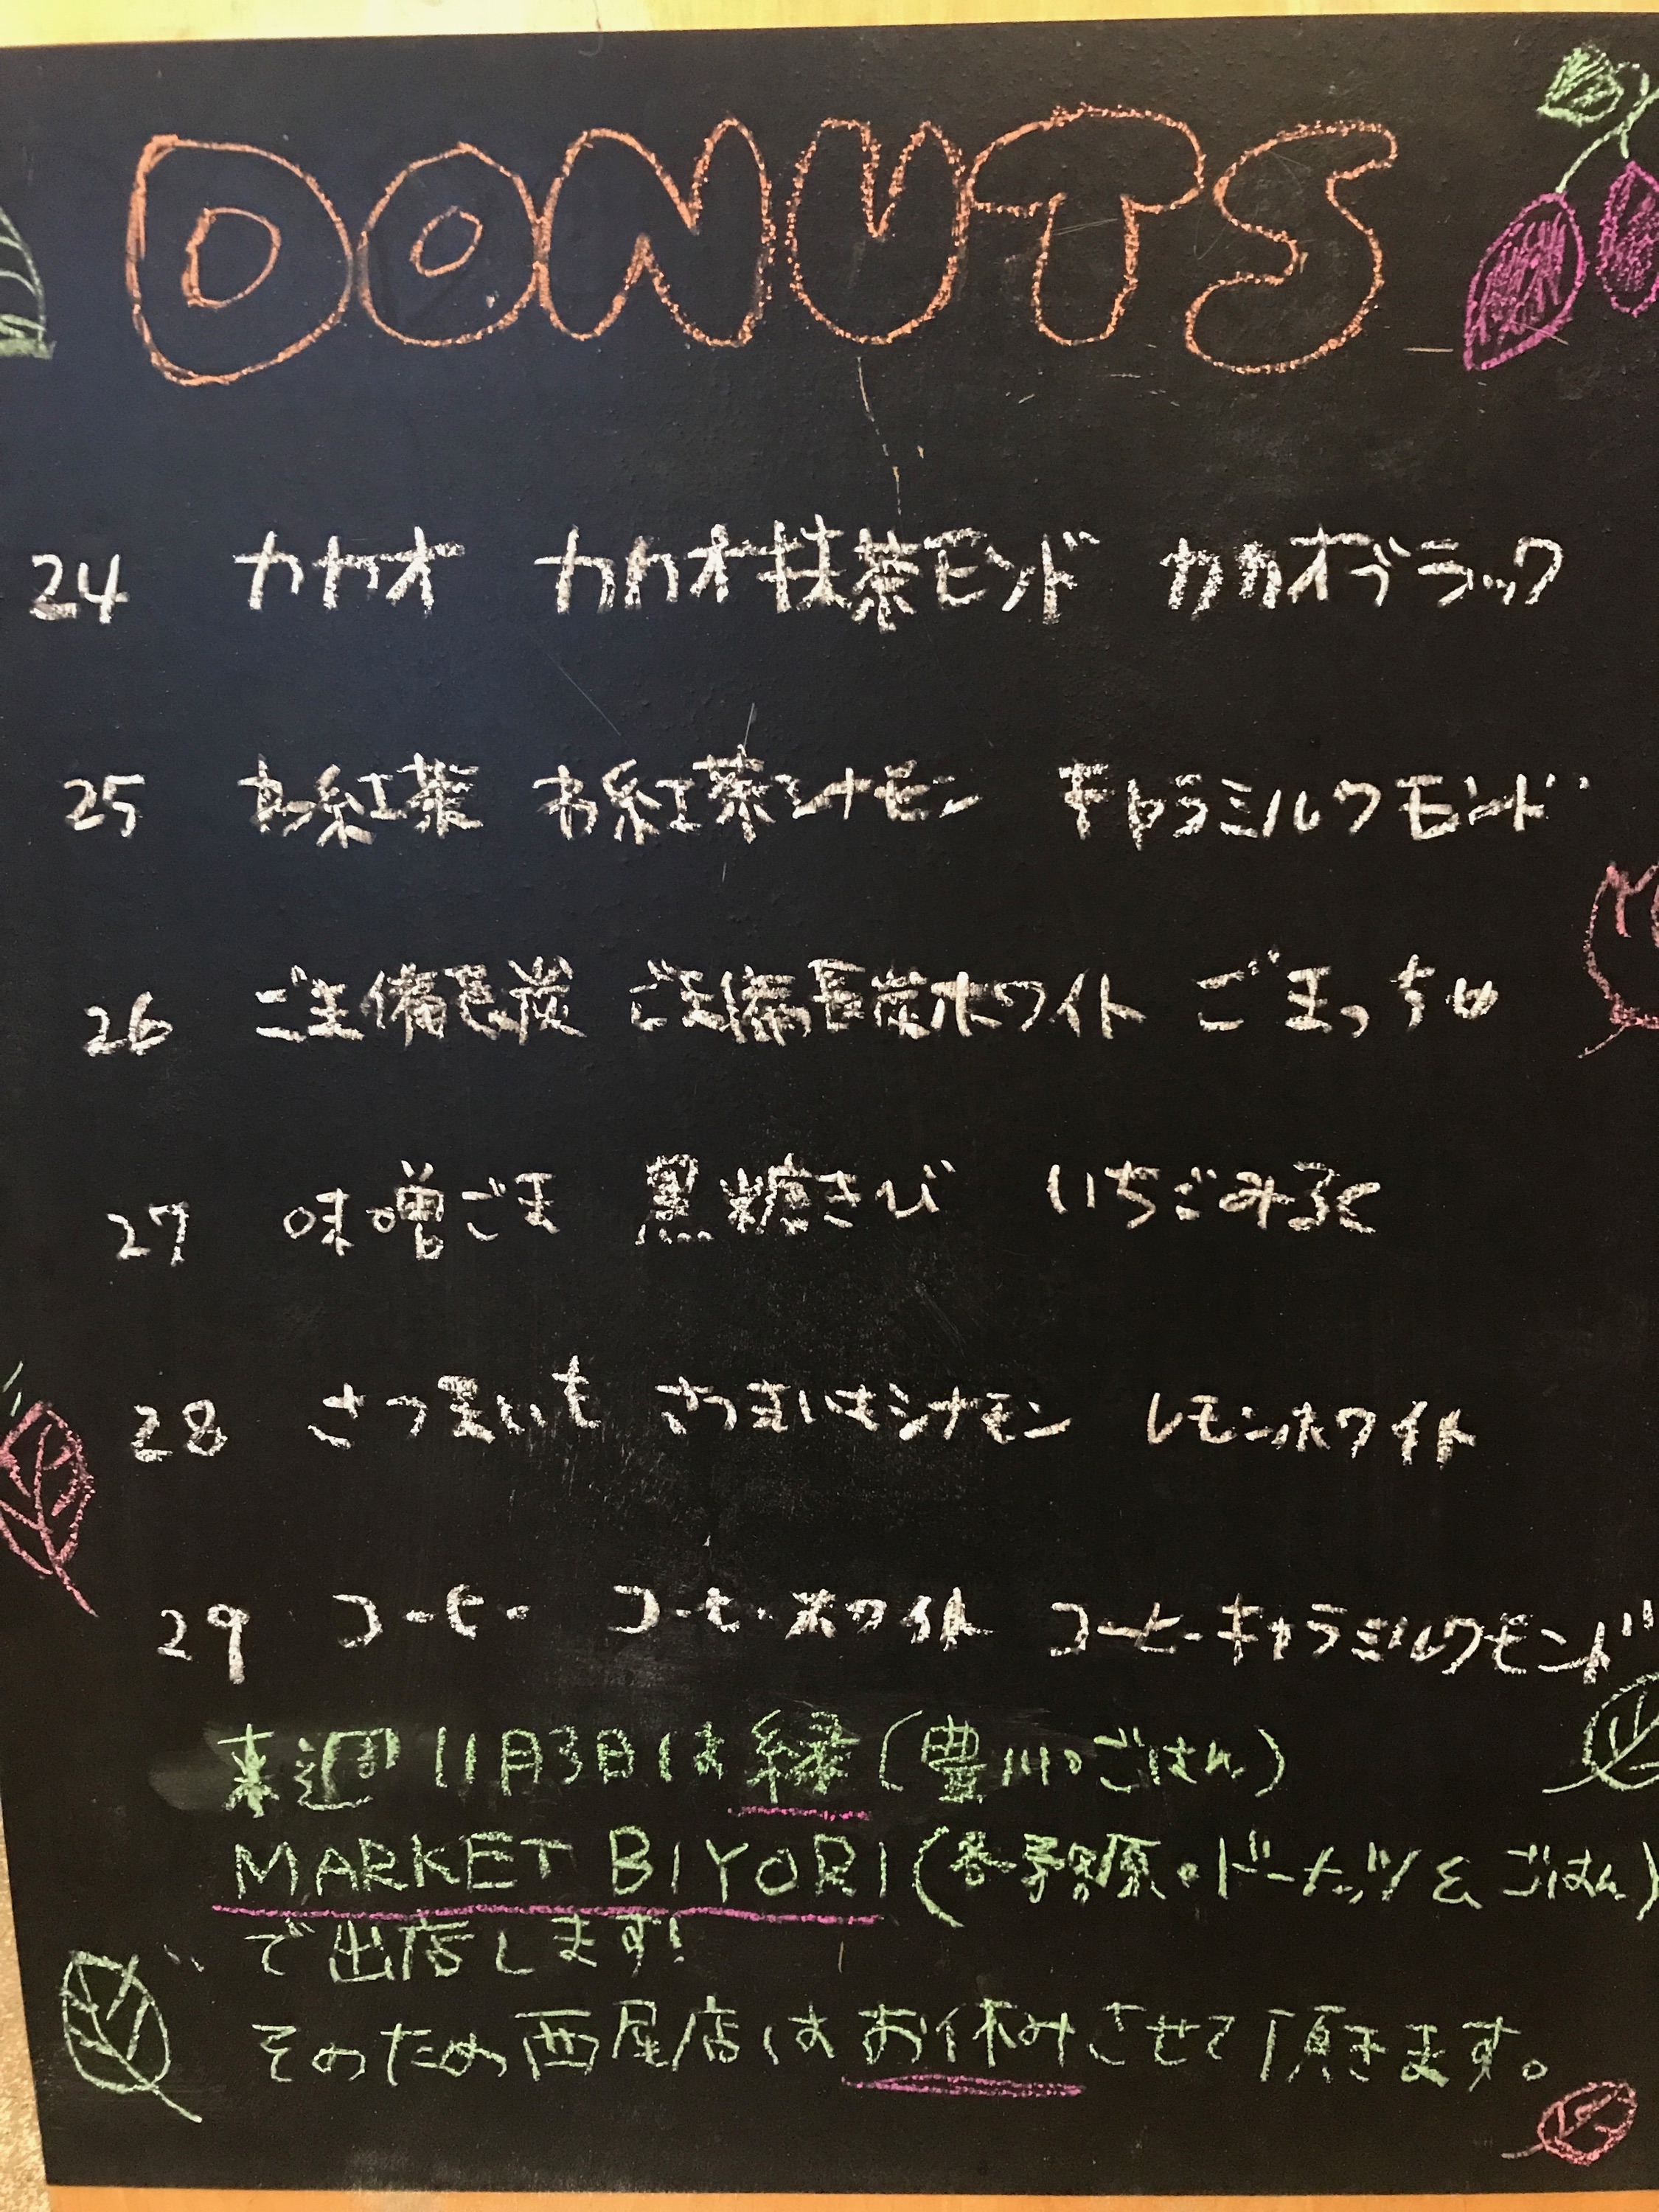 DONUTS
24 カカオ カカオ抹茶モンド カカオブラック
25 お紅茶 お紅茶シナモン キャラミルクモンド
26 ごま備長炭 ごま備長炭ホワイト ごまっちゅ
27 味噌ごま 黒糖きび いちごみるく
28 さつまいも さつまいもシナモン レモンホワイト
29 コーヒー コーヒーホワイト コーヒーキャラミルクモンド
来週11月3日は縁(豊川・ごはん)
MARKET BIYORI(各務原・ドーナッツ&ごはん)
で出店します!
そのため西尾店はお休みさせて頂きます。